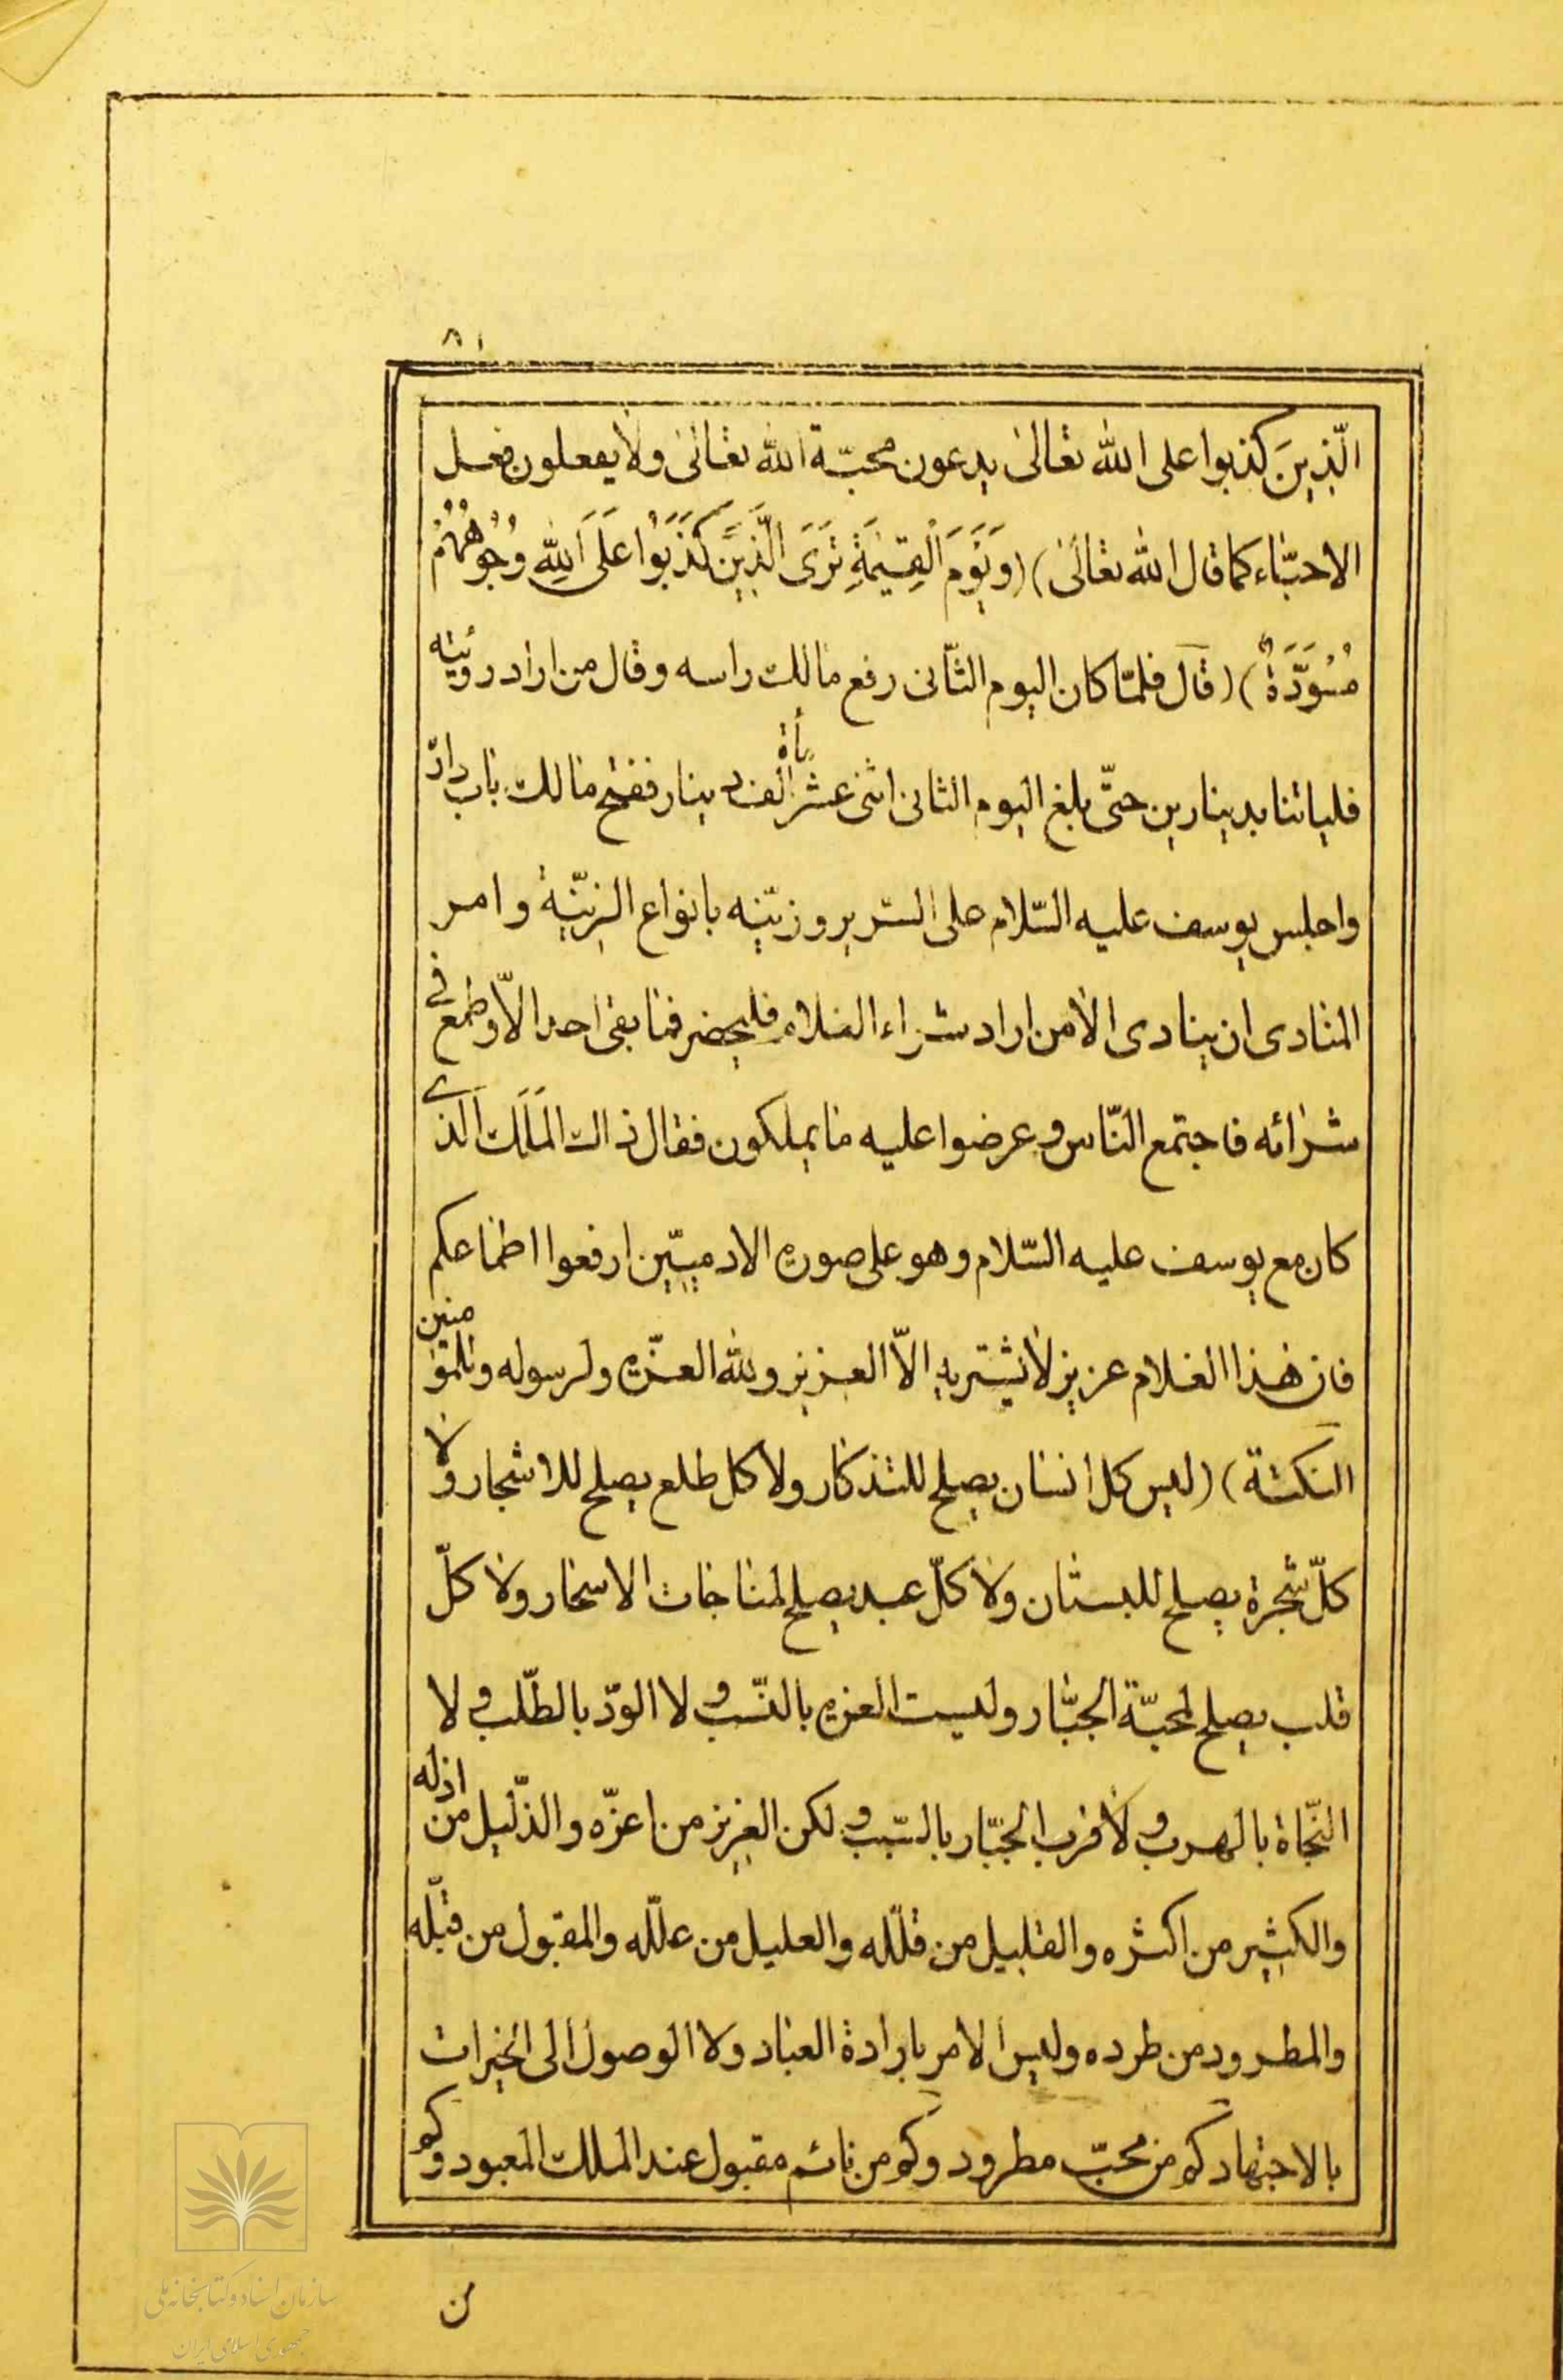 ٨١
الّذينَ كذبوا على الله تعالى يدعون محبّة الله تعالى ولا يفعلون فعل
الاحبّاء كما قال الله تعالى) (وَيَوْمَ الْقِيٰمَةِ تَرَى الَّذِينَ كَذَبُوا عَلَى اللهِ وُجُوهُهُمْ
مُسْوَدَّةٌ) (قال فلمّا كان اليوم الثّانى رفع مالك راسه وقال من اراد رؤيته
فلياتنا بدينارين حتّى بلغ اليوم الثانى اثنى عشر مأة الف دينار ففتح مالك باب دارّ
واجلس يوسف عليه السّلام على السّرير وزيّنه بانواع الزّينة وامر
المنادى ان ينادى الا من اراد شراء الغلام فليحضر فما بقى احد الاّ وطمع فى
شرائه فاجتمع النّاس وعرضوا عليه ما يملكون فقال ذالك المَلَك الّذى
كان مع يوسف عليه السّلام وهو على صورة الادميّين ارفعوا اطماعكم
فان هذا الغلام عزيز لا يشتريه الاّ العزيز ولله العزّة ولرسوله وللمؤمنين
النكتة) (ليس كل انسان يصلح للتذكار ولا كل طلع يصلح للاشجار ولا
كلّ شجرة يصلح للبستان ولا كلّ عبد يصلح لمناجات الاسحار ولا كلّ
قلب يصلح لمحبّة الجبّار وليست العزة بالنّسب ولا الودّ بالطّلب ولا
النّجاة بالهرب ولا قرب الجبّار بالسّبب ولكن العزيز من اعزّه والذّليل من اذله
والكثير من اكثره والقليل من قلّله والعليل من علّله والمقبول من قبّله
والمطرود من طرده وليس الامر بارادة العباد ولا الوصول الى الخيرات
بالاجتهاد كم من محبّ مطرود وكم من نائم مقبول عند الملك المعبود وكم
من
سازمان اسناد و کتابخانه ملی
جمهوری اسلامی ایران